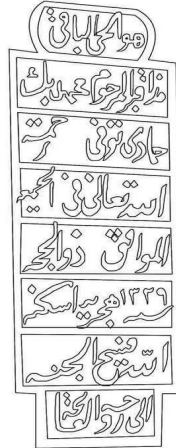 هو الحي الباقي
هذا قبر المرحوم محمد بك
حمادي توفي رحمة
الله تعالى في الخميس
الموافق ذو الحجة
سنه ١٢٢٩ هجريه اسكنه
الله فسيح الجنه
الى روحه الفاتحة